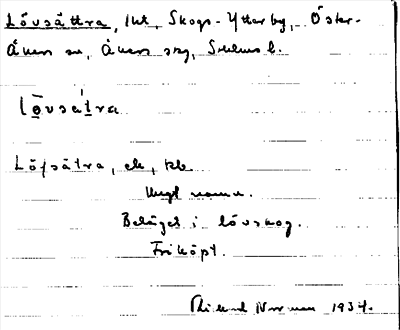 Lövsättra, lht, Skogs-Ytterby, Öster-
Åkers sn, Åkers skg, Sthlms l.
Lövsätra
Löfsätra, ek, kb.
Ungt namn.
Beläget i lövskog.
Friköpt.
Rikard Norman 1934.